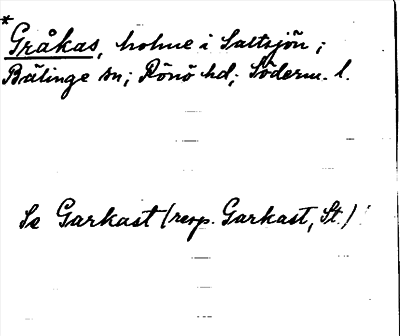 *
Gråkas, holme i Saltsjön;
Bälinge sn; Rönö hd; Söderm. l.
Se Garkast (resp. Garkast, St.)